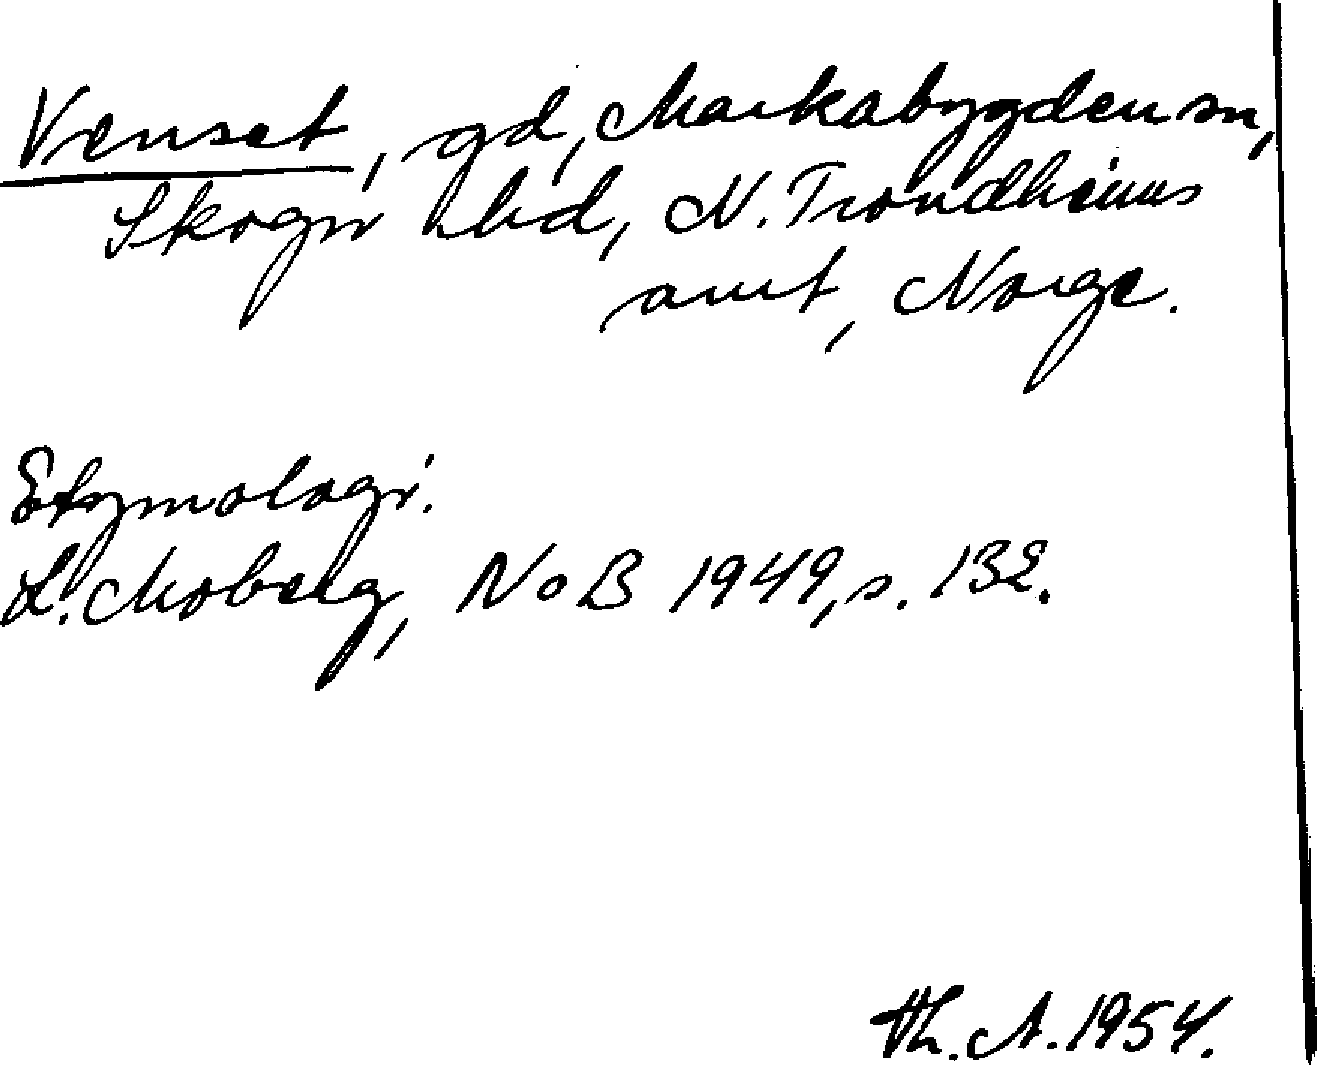 Venset, gd, Markabygden sn,
Skogn hd, N. Trondheims
amt, Norge.
Etymologi.
L. Moberg, NoB 1949, s. 132.
Th. A. 1954.